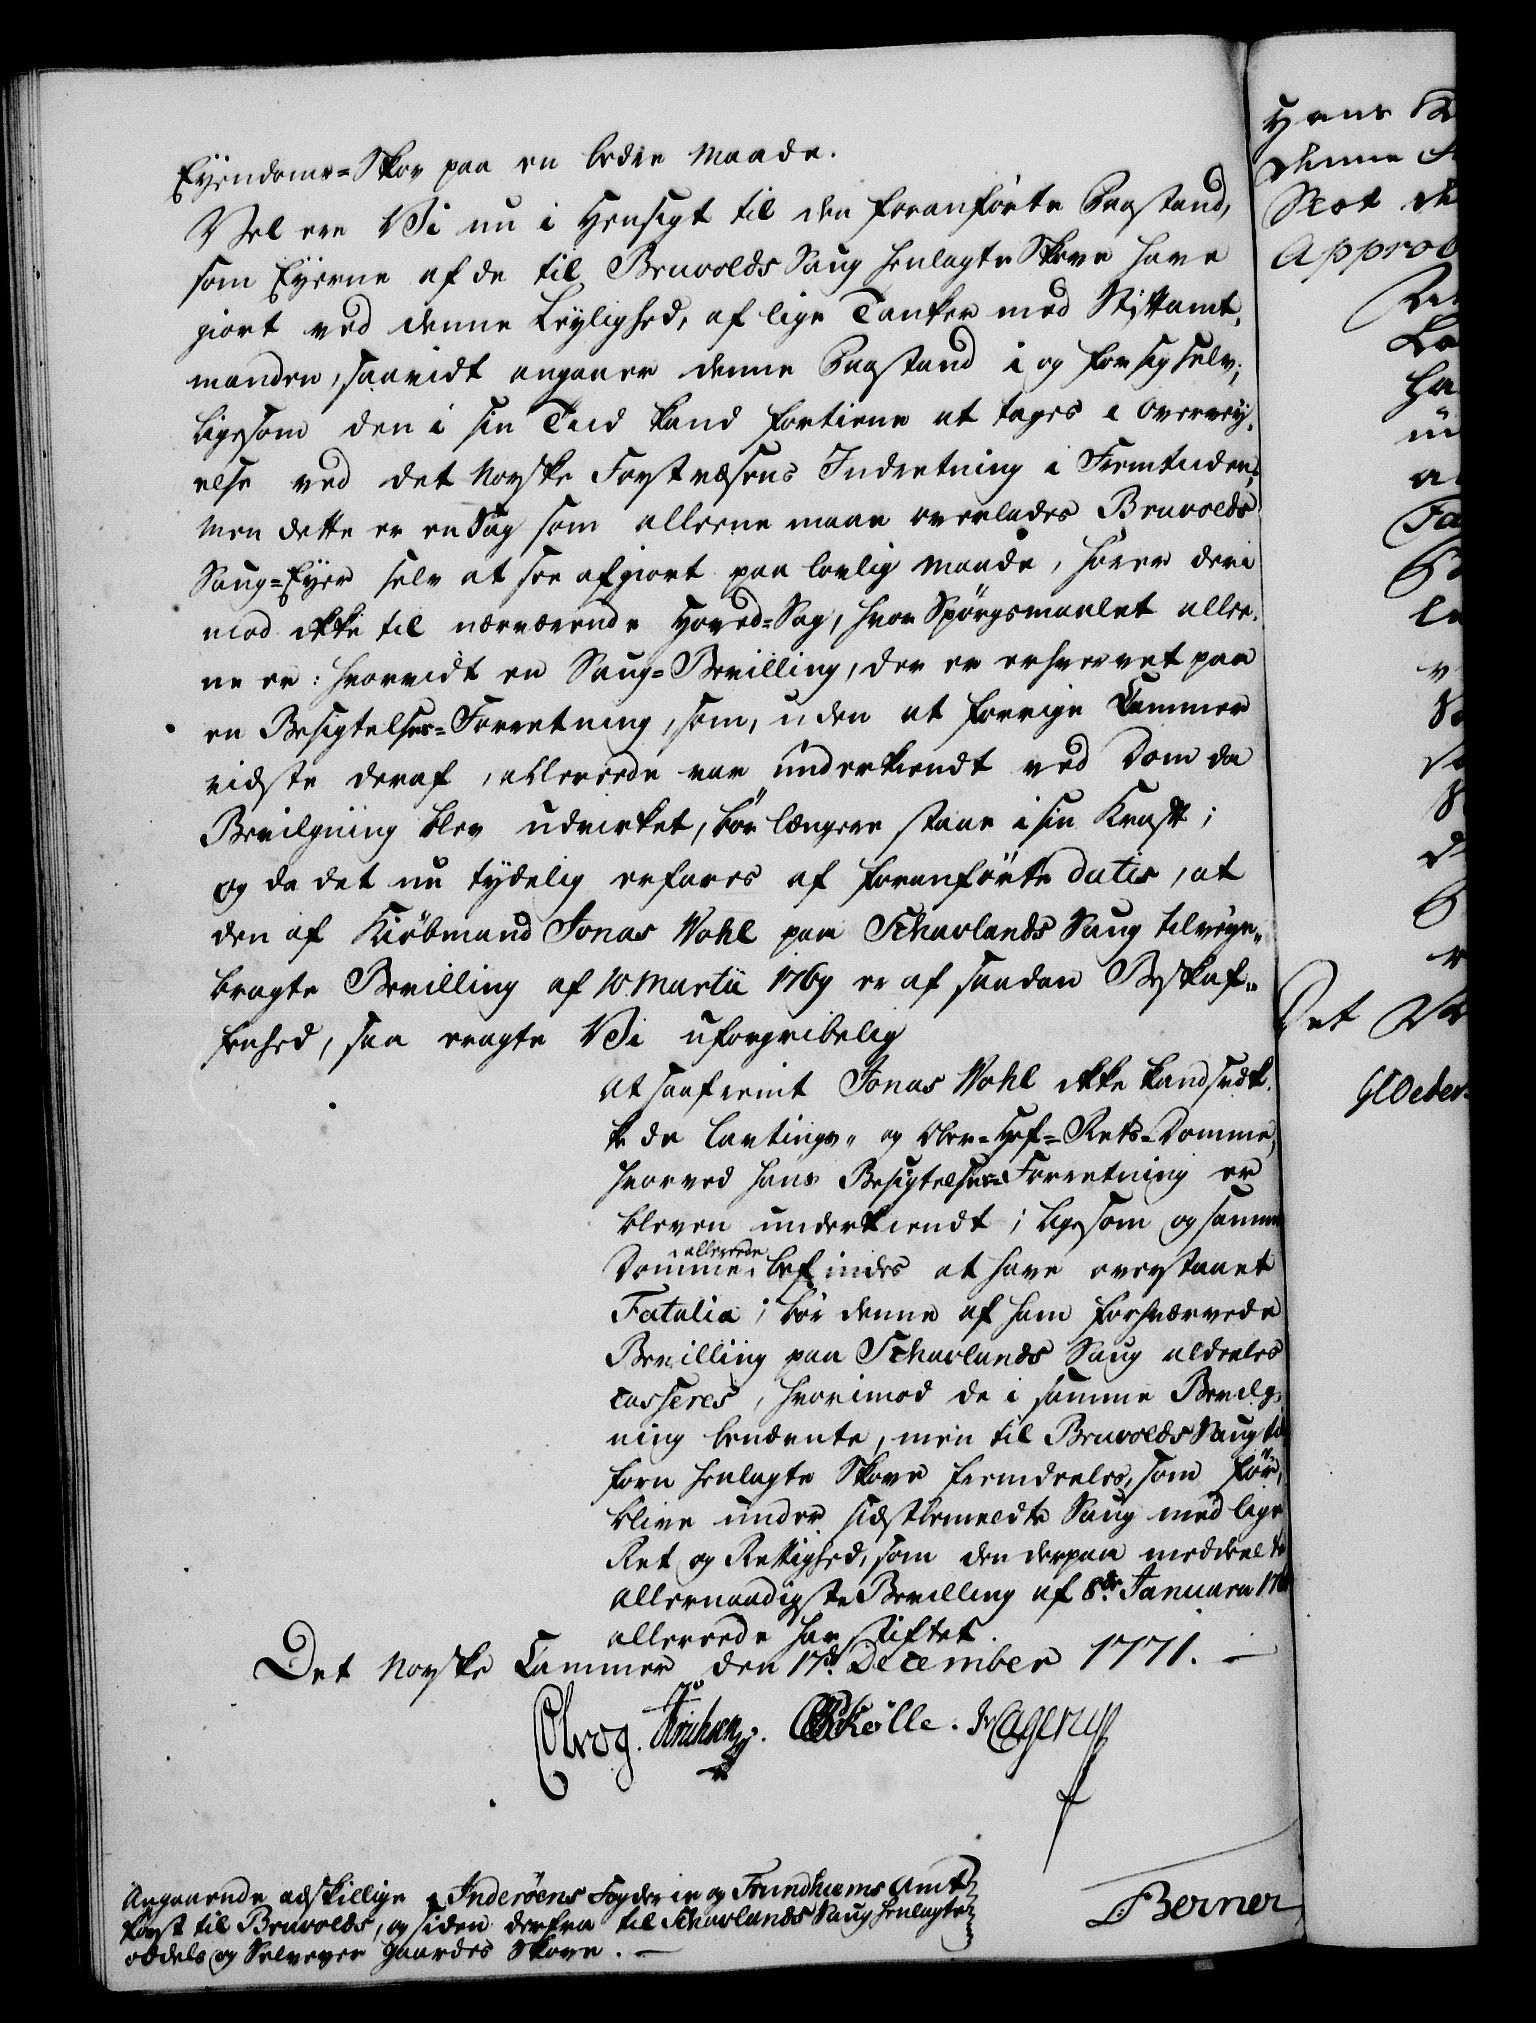 Eyendoms-Skov paa en bedre Maade.
Vel ere Vi nu i Hensigt til den foranførte Paastand,
som Eyerne af de til Bruvolds Saug henlagte Skove have
giort ved denne Leylighed, af lige Tanker med Stiftamt-
manden, saavidt angaaer denne Paastand i og for sig selv;
ligesom den i sin Tiid kand fortiene at tages i Overvey-
else ved det Norske Forstvæsens Indretning i Fremtiden;
men dette er en Sag som alleene maae overlades Bruvolds
Saug-Eyer selv at see afgiort paa lovlig Maade, hører deri
mod ikke til nærværende Hoved-Sag, hvor Spørgsmaalet allee-
ne er: hvorvidt en Saug-Bevilling, der er erhvervet paa
en Besigtelses-Forretning, som, uden at forrige Cammer
vidste deraf, allereede var underkiendt ved Dom da
Bevilgning blev udvirket, bør længere staae i sin Kraft;
og da det nu tydelig erfares af foranførte datis, at
den af Kiøbmand Jonas Wohl paa Scharlands Saug tilveye-
bragte Bevilling af 10 Martii 1769 er af saadan Beskaf-
fenhed, saa eragte Vi uforgribelig
At saafremt Jonas Wohl ikke kand svæk-
ke de Lavtings- og Over-Hof-Rets-Domme,
hvorved hans Besigtelses-Forretning er
bleven underkiendt; ligesom og samme
Domme allereede befindes at have overstaaet
Fatalia; bør denne af ham forhværvede
Bevilling paa Scharlands Saug aldeeles
casseres, hvorimod de i samme Bevilg-
ning benævnte, men til Bruvolds Saug til
forn henlagte Skove fremdeeles, som før,
blive under sidstbemeldte Saug med lige
Ret og Rettighed, som den derpaa meddeelte
allernaadigste Bevilling af 8de Januarii 176
allereede har stiftet.
Det Norske Cammer den 17de December 1771. —
Kølle. Hagerup
Berner
Angaaende adskillige i Inderøens Fogderie og Trundhiems Amt
først til Bruvolds, og siden derfra til Scharlands Saug henlagte
odels og Selveyer Gaardes Skove. —
Hans K
denne
Not de
Approb
Fa
Det